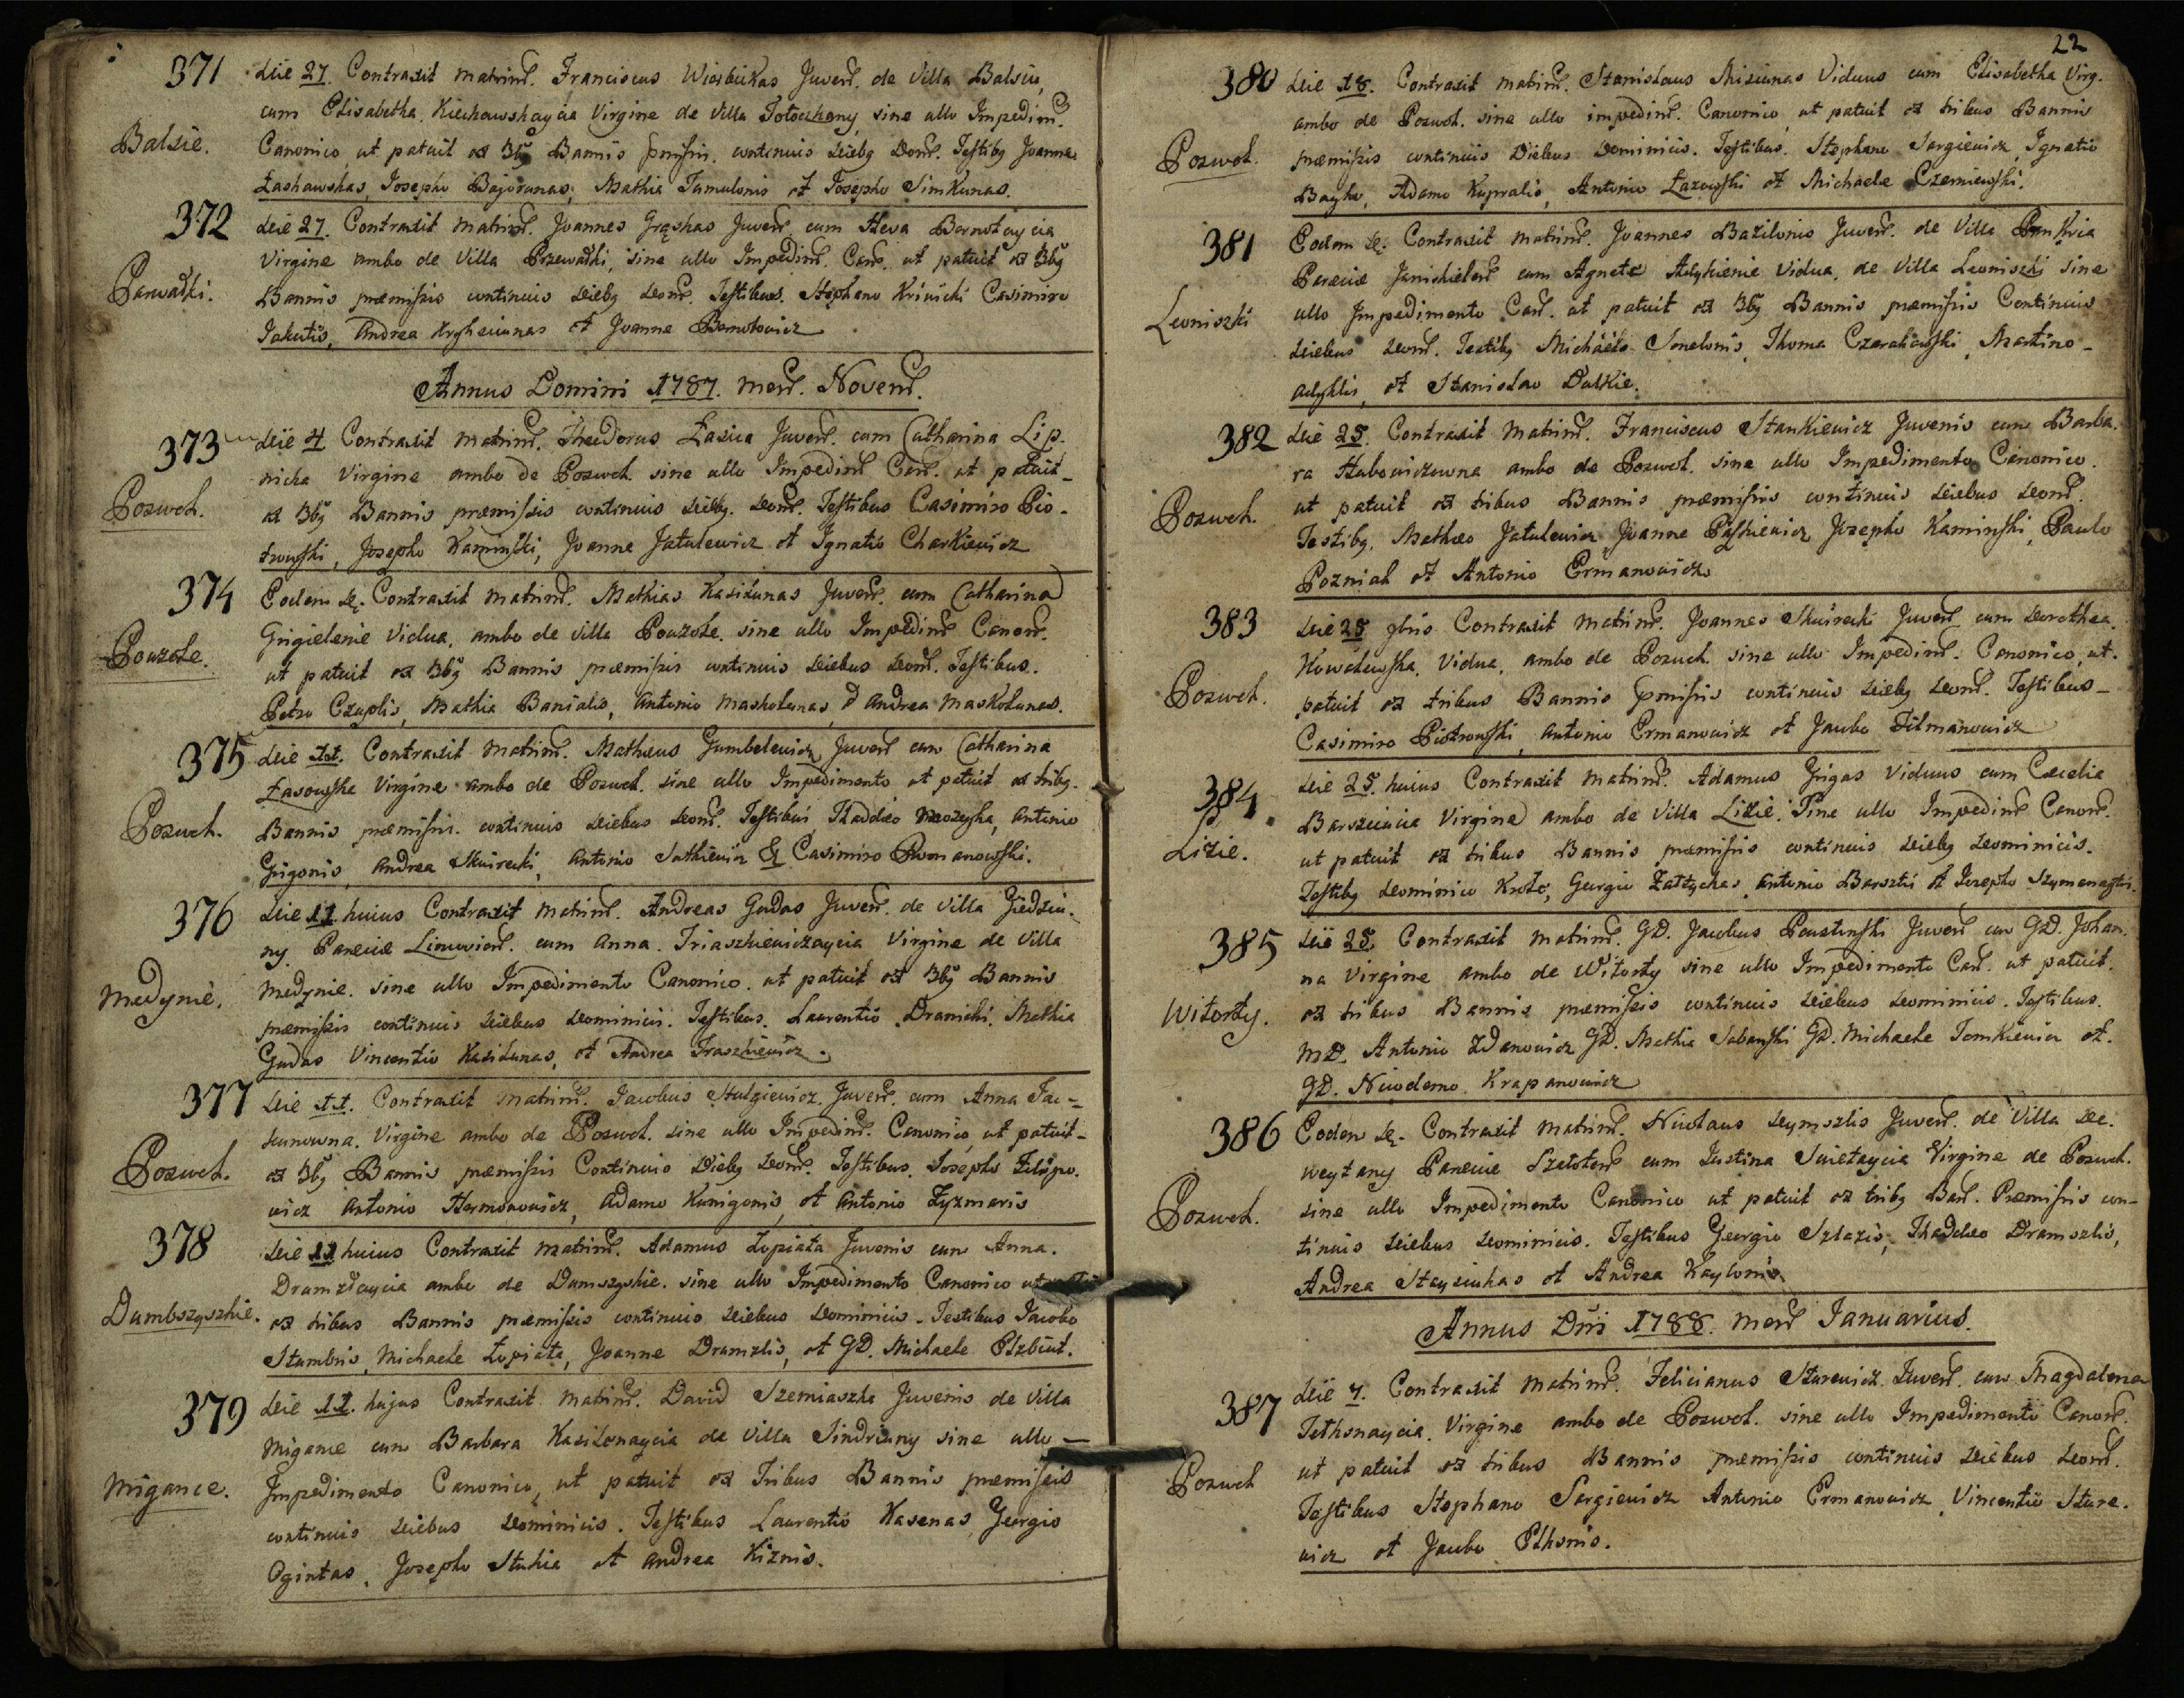 371 Die 27. Contraxit matrim. Franciscus Wiasbickas Juven. de Villa Balsie,
cum Elisabetha. Virgine de Villa sine ullo Impedim.
Balsie.
Canonico ut patuit ex 3bg Bannis pmissis. continuis Diebg Dom. Testibg Joanne
Laskawskas, Josepho Bajorunas, Mathia Tamulonis et Josepho Simkunas.
372 Die 27. Contraxit Matrim. Joannes Gręskas Juven. cum Heva Barnotaycia
Virgine ambo de Villa Przewałki, sine ullo Impedim. Can. ut patuit ex 3bg
Parwałki.
Bannis præmissis continuis Diebg Dom. Testibus. Stephano Krinicki Casimiro
Jakutis, Andrea et Joanne Bernotowicz
Annus Domini 1787. Men. Novem.
373 Die 4 Contraxit Matrim. Theodorus Łasica Juven. cum Catharina Lip-
nicka Virgine ambo de Poswol. sine ullo Impedim Can. ut patuit-
Poswol.
ex 3bg Bannis præmissis continuis Diebg. Dom. Testibus Casimiro Pio-
trowski, Josepho Kaminski, Joanne Jatulewicz et Ignatio Charkiewicz
374 Eodem Di. Contraxit Matrim. Mathias Kasilunas Juven. cum Catharina
Grigielenie Vidua, ambo de villa Pouzole. sine ullo Impedim Canon.
Pouzole.
ut patuit ex 3bg Bannis præmissis continuis Diebus Dom. Testibus.
Petro Czaplis, Mathia Banialis, Antonio Maskolunas, & Andrea Maskolunas.
375 Die 11. Contraxit Matrim. Matheus Gumbelewicz Juven cum Catharina
Łasowska Virgine ambo de Poswol. sine ullo Impedimento ut patuit ex tribg.
Poswol.
Bannis præmissis. continuis Diebus Dom. Testibus Thaddeo Mrozyka, Antonio
Grigonis, Andrea Skuirecki, Antonio Sutkiewicz & Casimiro Romanowski.
376 Die 11 huius Contraxit Matrim. Andreas Gudas Juven. de villa Giedziu-
ny Paraeciæ Linkovien. cum Anna. Triaszkiewiczaycia Virgine de Villa
Medynie.
Medynie. sine ullo Impedimento Canonico. ut patuit ex 3bg Bannis
præmissis continuis Diebus Dominicis. Testibus. Laurentio Dranicki. Mathia
Gudas Vincentio Kasilunas, et Andrea Traszkiewicz.
377 Die 11. Contraxit Matrim. Jacobus Stulgiewicz. Juven. cum Anna Jac-
kunowna. Virgine ambo de Poswol. sine ullo Impedim. Canonico, ut patuit-
Poswol.
ex 3bg Bannis præmissis Continuis Diebg Dom. Testibus. Josepho Filipo-
wicz Antonio Hermonowicz, Adamo Kunigonis, et Antonio Zyzmaris
378 Die 11 huius Contraxit Matrim. Adamus Łopiata Juvenis cum Anna.
Dramzlaycia ambo de Dumszyskie. sine ullo Impedimento Canonico ut
Dumbszyszkie.
ex tribus Bannis præmissis continuis Diebus Dominicis. Testibus Jacobo
Stumbris, Michaele Łopiata, Joanne Dramzlis, et GD. Michaele Elzbiut.
379 Die 11. hujus Contraxit Matrim. David Szemiaszka Juvenis de Villa
Migance cum Barbara Kasilonaycia de Villa Sindriuny sine ullo-
Migance.
Impedimento Canonico, ut patuit ex Tribus Bannis præmissis
continuis Diebus Dominicis. Testibus Laurentio Kasenas, Georgio
Ogintas, Josepho Stukia et Andrea Kiznis.
22
380 Die 18. Contraxit Matrim. Stanislaus Misiunas Viduus cum Elisabetha Virg.
ambo de Poswol. sine ullo impedim. Canonico, ut patuit ex tribus Bannis
Poswol.
præmissis continuis Diebus Dominicis. Testibus. Stephano Sargiewicz, Ignatio
Bayka, Adamo Kupralis, Antonio Łazowski et Michaele Czerniewski.
381 Eodem Di. Contraxit Matrim. Joannes Bazilonis Juven. de Villa
Paraeciæ Janiskielen cum Agnete Adykienie Vidua, de Villa Leoniszki sine
Leoniszki
ullo Impedimento Can. ut patuit ex 3bg Bannis præmissis Continuis
Diebus Dom. Testibg Michaele Smelonis, Thoma Czerakowski, Martino-
Adyklis, et Stanislao Dulkie.
382 Die 25. Contraxit Matrim. Franciscus Stankiewicz Juvenis cum Barba-
ra Hubowiczowna ambo de Poswol. sine ullo Impedimento Canonico.
Poswol.
ut patuit ex tribus Bannis præmissis continuis Diebus Dom.
Testibg. Matheo Jatulewicz Joanne Paszkiewicz Josepho Kaminski, Paulo
Pozniak et Antonio Ermanowicz
383 Die 25 9bris Contraxit Matrim. Joannes Skuirecki Juven. cum Dorothea.
Nowelewska, Vidua, ambo de Poswol. sine ullo Impedim. Canonico, ut.
Poswol.
patuit ex tribus Bannis pmissis continuis Diebg Dom. Testibus-
Casimiro Piotrowski, Antonio Ermanowicz et Jacobo Tilmanowicz
384 Die 25. huius Contraxit Matrim. Adamus Grigas Viduus cum Cæcilia
Barszciucia Virgine ambo de Villa Lizie. Sine ullo Impedim Canon.
Lizie.
ut patuit ex tribus Bannis præmissis continuis Diebg Dominicis.
Testibg Dominico Krole, Georgio Zattyckas, Antonio Barszti et Josepho Szymanajtis.
385 Die 25. Contraxit Matrim. GD. Jacobus Poustinski Juven cum GD. Johan-
na Virgine ambo de Witorty sine ullo Impedimento Can. ut patuit.
Witorty.
ex tribus Bannis præmissis continuis Diebus Dominicis. Testibus.
MD. Antonio Zdanowicz GD. Mathia Sabanski GD. Michaele Tomkiewicz et.
GD. Nicodemo Krapanowicz
386 Eodem Di. Contraxit Matrim. Nicolaus Deymszlis Juven. de Villa De-
weytany Paraeciæ Szawloten cum Justina Swietaycia Virgine de Poswol.
Poswol.
sine ullo Impedimento Canonico ut patuit ex tribg Ban. Præmissis con-
tinuis Diebus Dominicis. Testibus Georgio Szlazis, Thaddeo Dramszlis,
Andrea Staysiukas et Andrea Kaylonis.
Annus Dni 1788. Men Januarius.
387 Die 7. Contraxit Matrim. Felicianus Sturewicz. Juven. cum Magdalena
Virgine ambo de Poswol. sine ullo Impedimento Canon.
Poswol
ut patuit ex tribus Bannis præmissis continuis Diebus Dom.
Testibus Stephano Sargiewicz Antonio Ermanowicz, Vincentio Sture-
wicz et Jacobo Elksnis.